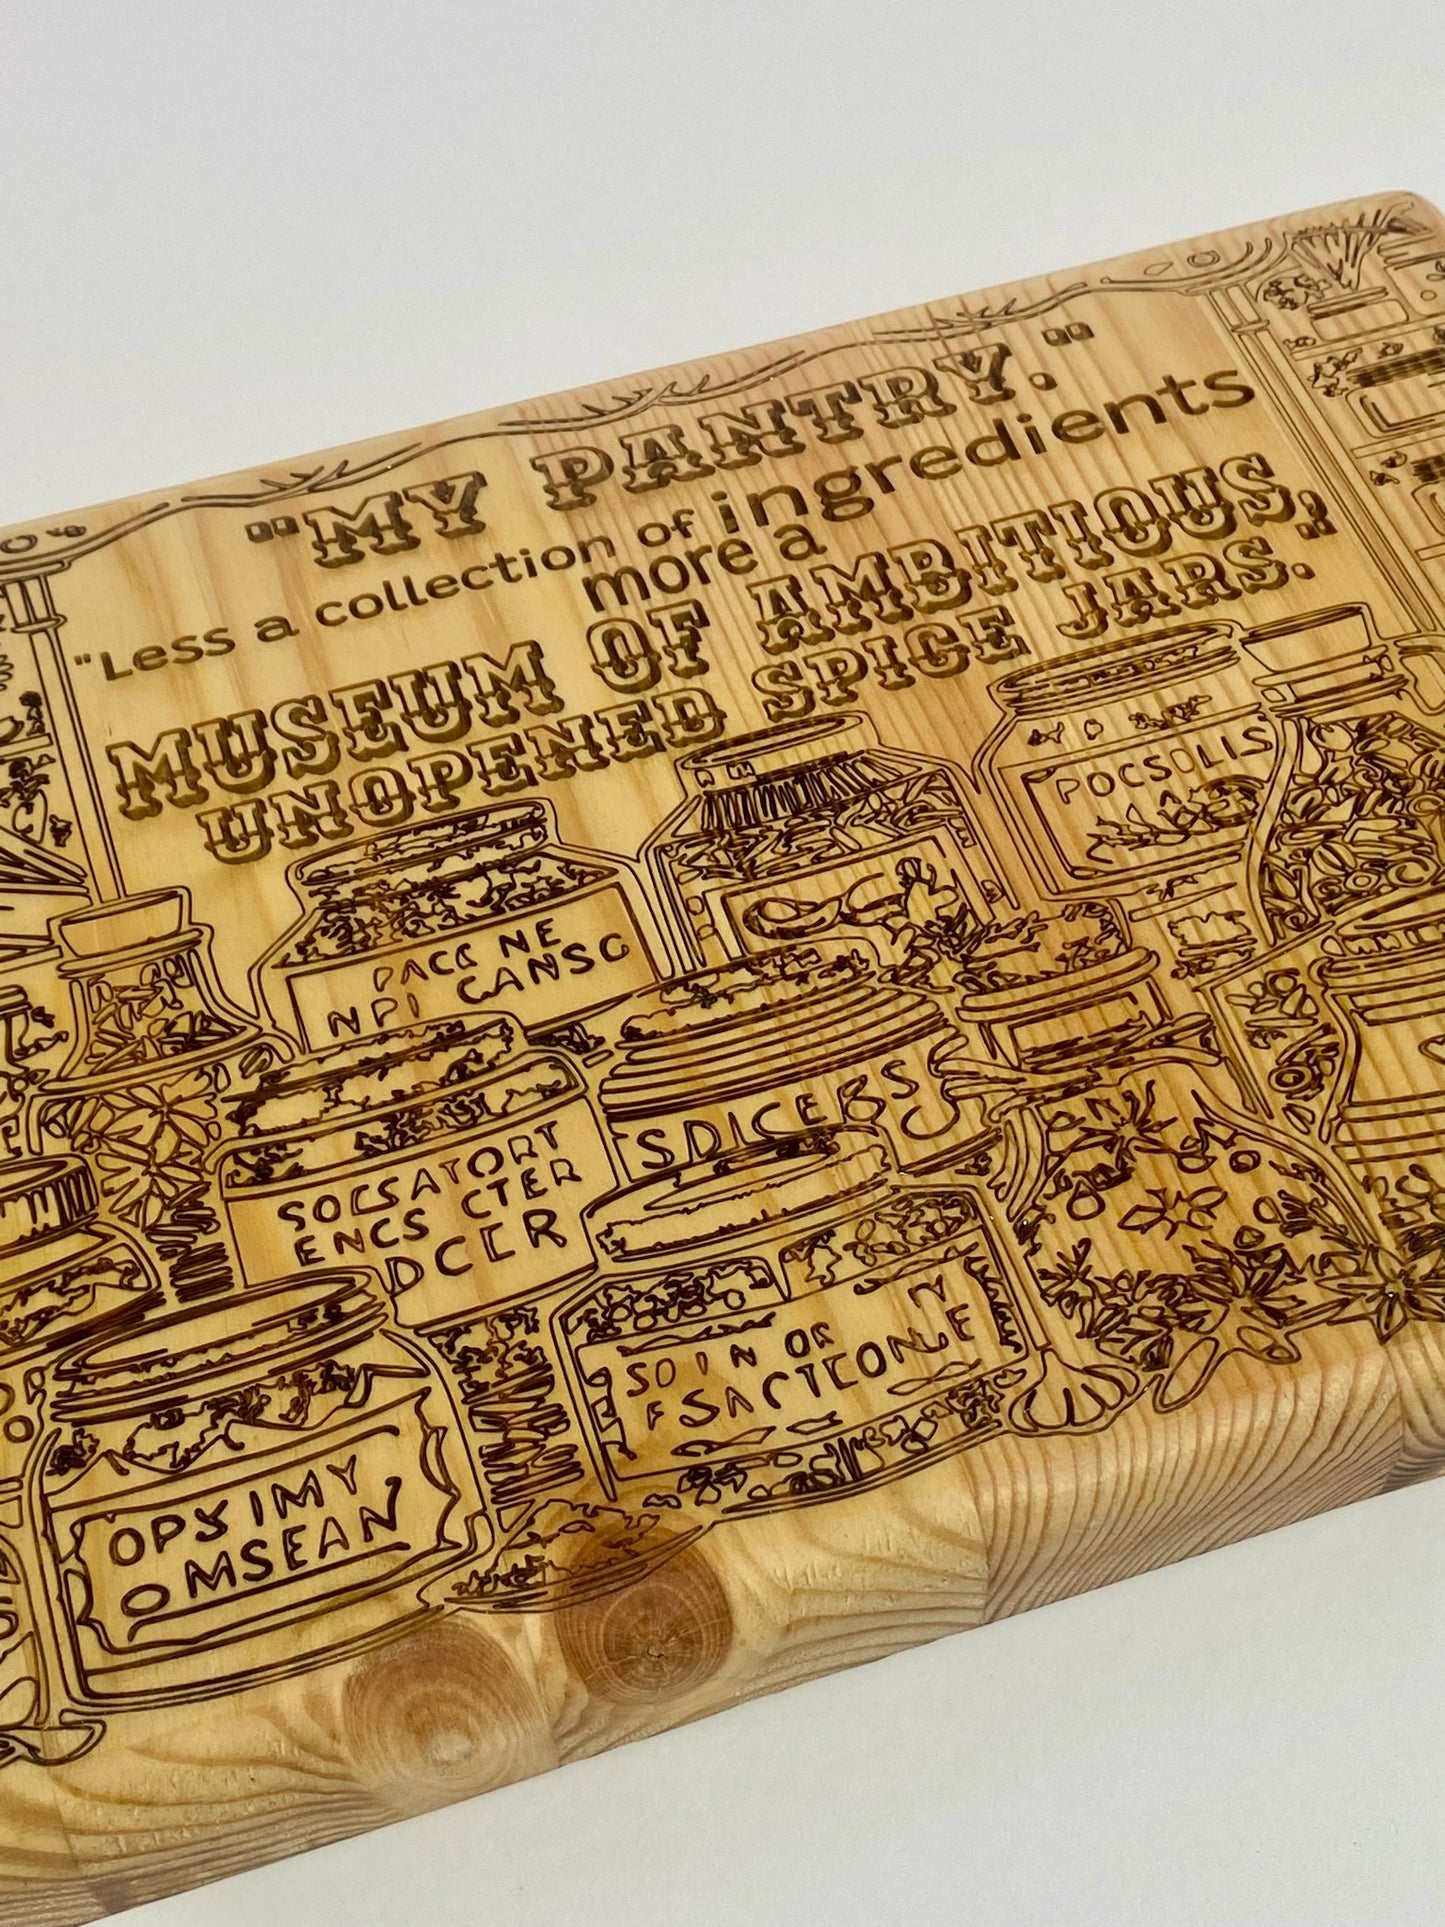 "MY PANTRY."
"Less a collection of ingredients
more a
MUSEUM OF AMBITIOUS,
UNOPENED SPICE JARS.
POCSOLLIS
PACC NE
NPI CANSO
SDICERS
SOCSATORT
ENCS CTER
DCER
SO IN OR
FSACTEONEE
OPSIMY
OMSEAN